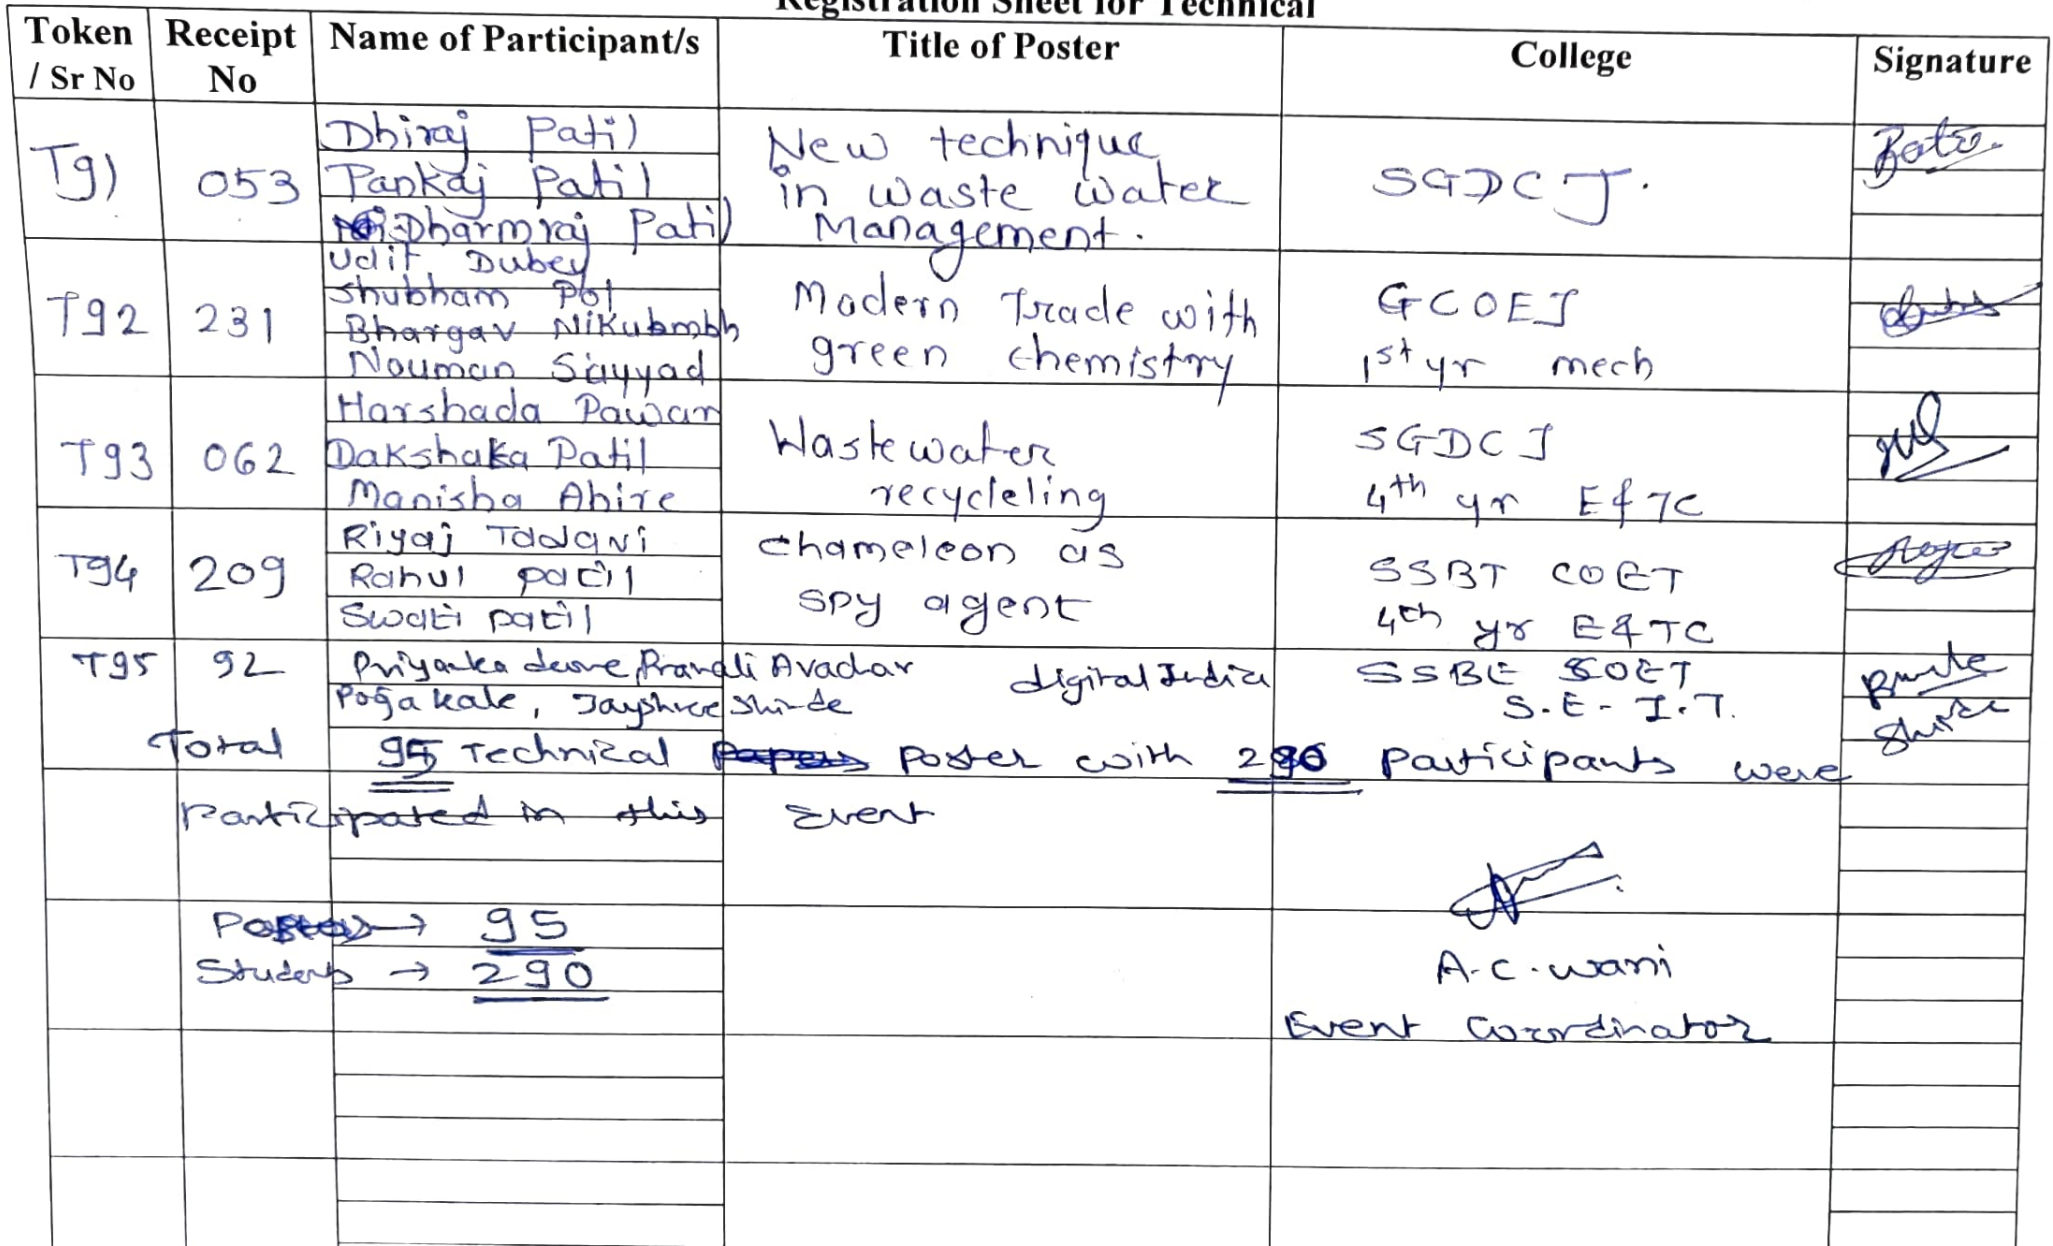 Registration Sheet for Technical
Token / Sr No Receipt No Name of Participant/s Title of Poster College Signature
T91 053 Dhiraj Patil
Pankaj Patil
Dharmraj Patil
New technique
in waste water
Management.
SGDCJ.
T92 231 Udit Dubey
Shubham Pol
Bhargav Nikubmbh
Nouman Sayyad
Modern Trade with
green chemistry
GCOEJ
1st yr mech
T93 062 Harshada Pawar
Dakshaka Patil
Manisha Ahire
Waste water
recycleling
SGDCJ
4th yr E&TC
T94 209 Riyaj Tadavi
Rahul patil
Swati patil
chameleon as
spy agent
SSBT COET
4th yr E&TC
T95 92 Priyanka deore, Pranali Avachar
Poja kale, Jayshree Shinde
digital India
SSBE COET
S.E. I.T.
Total 95 Technical Papers poster with 290 participants were
participated in this Event
Posters → 95
Students → 290
A.C. Wani
Event Coordinator